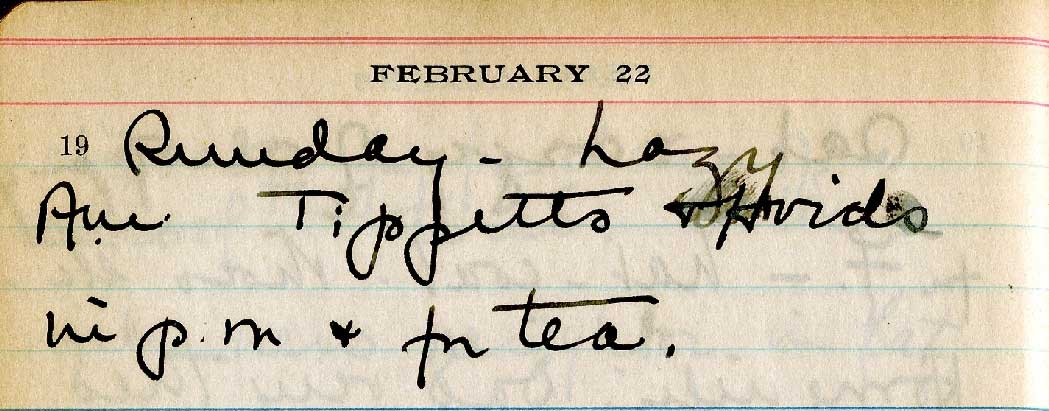 FEBRUARY 22
19 Sunday - Lazy
Tippetts &
in p.m & for tea.